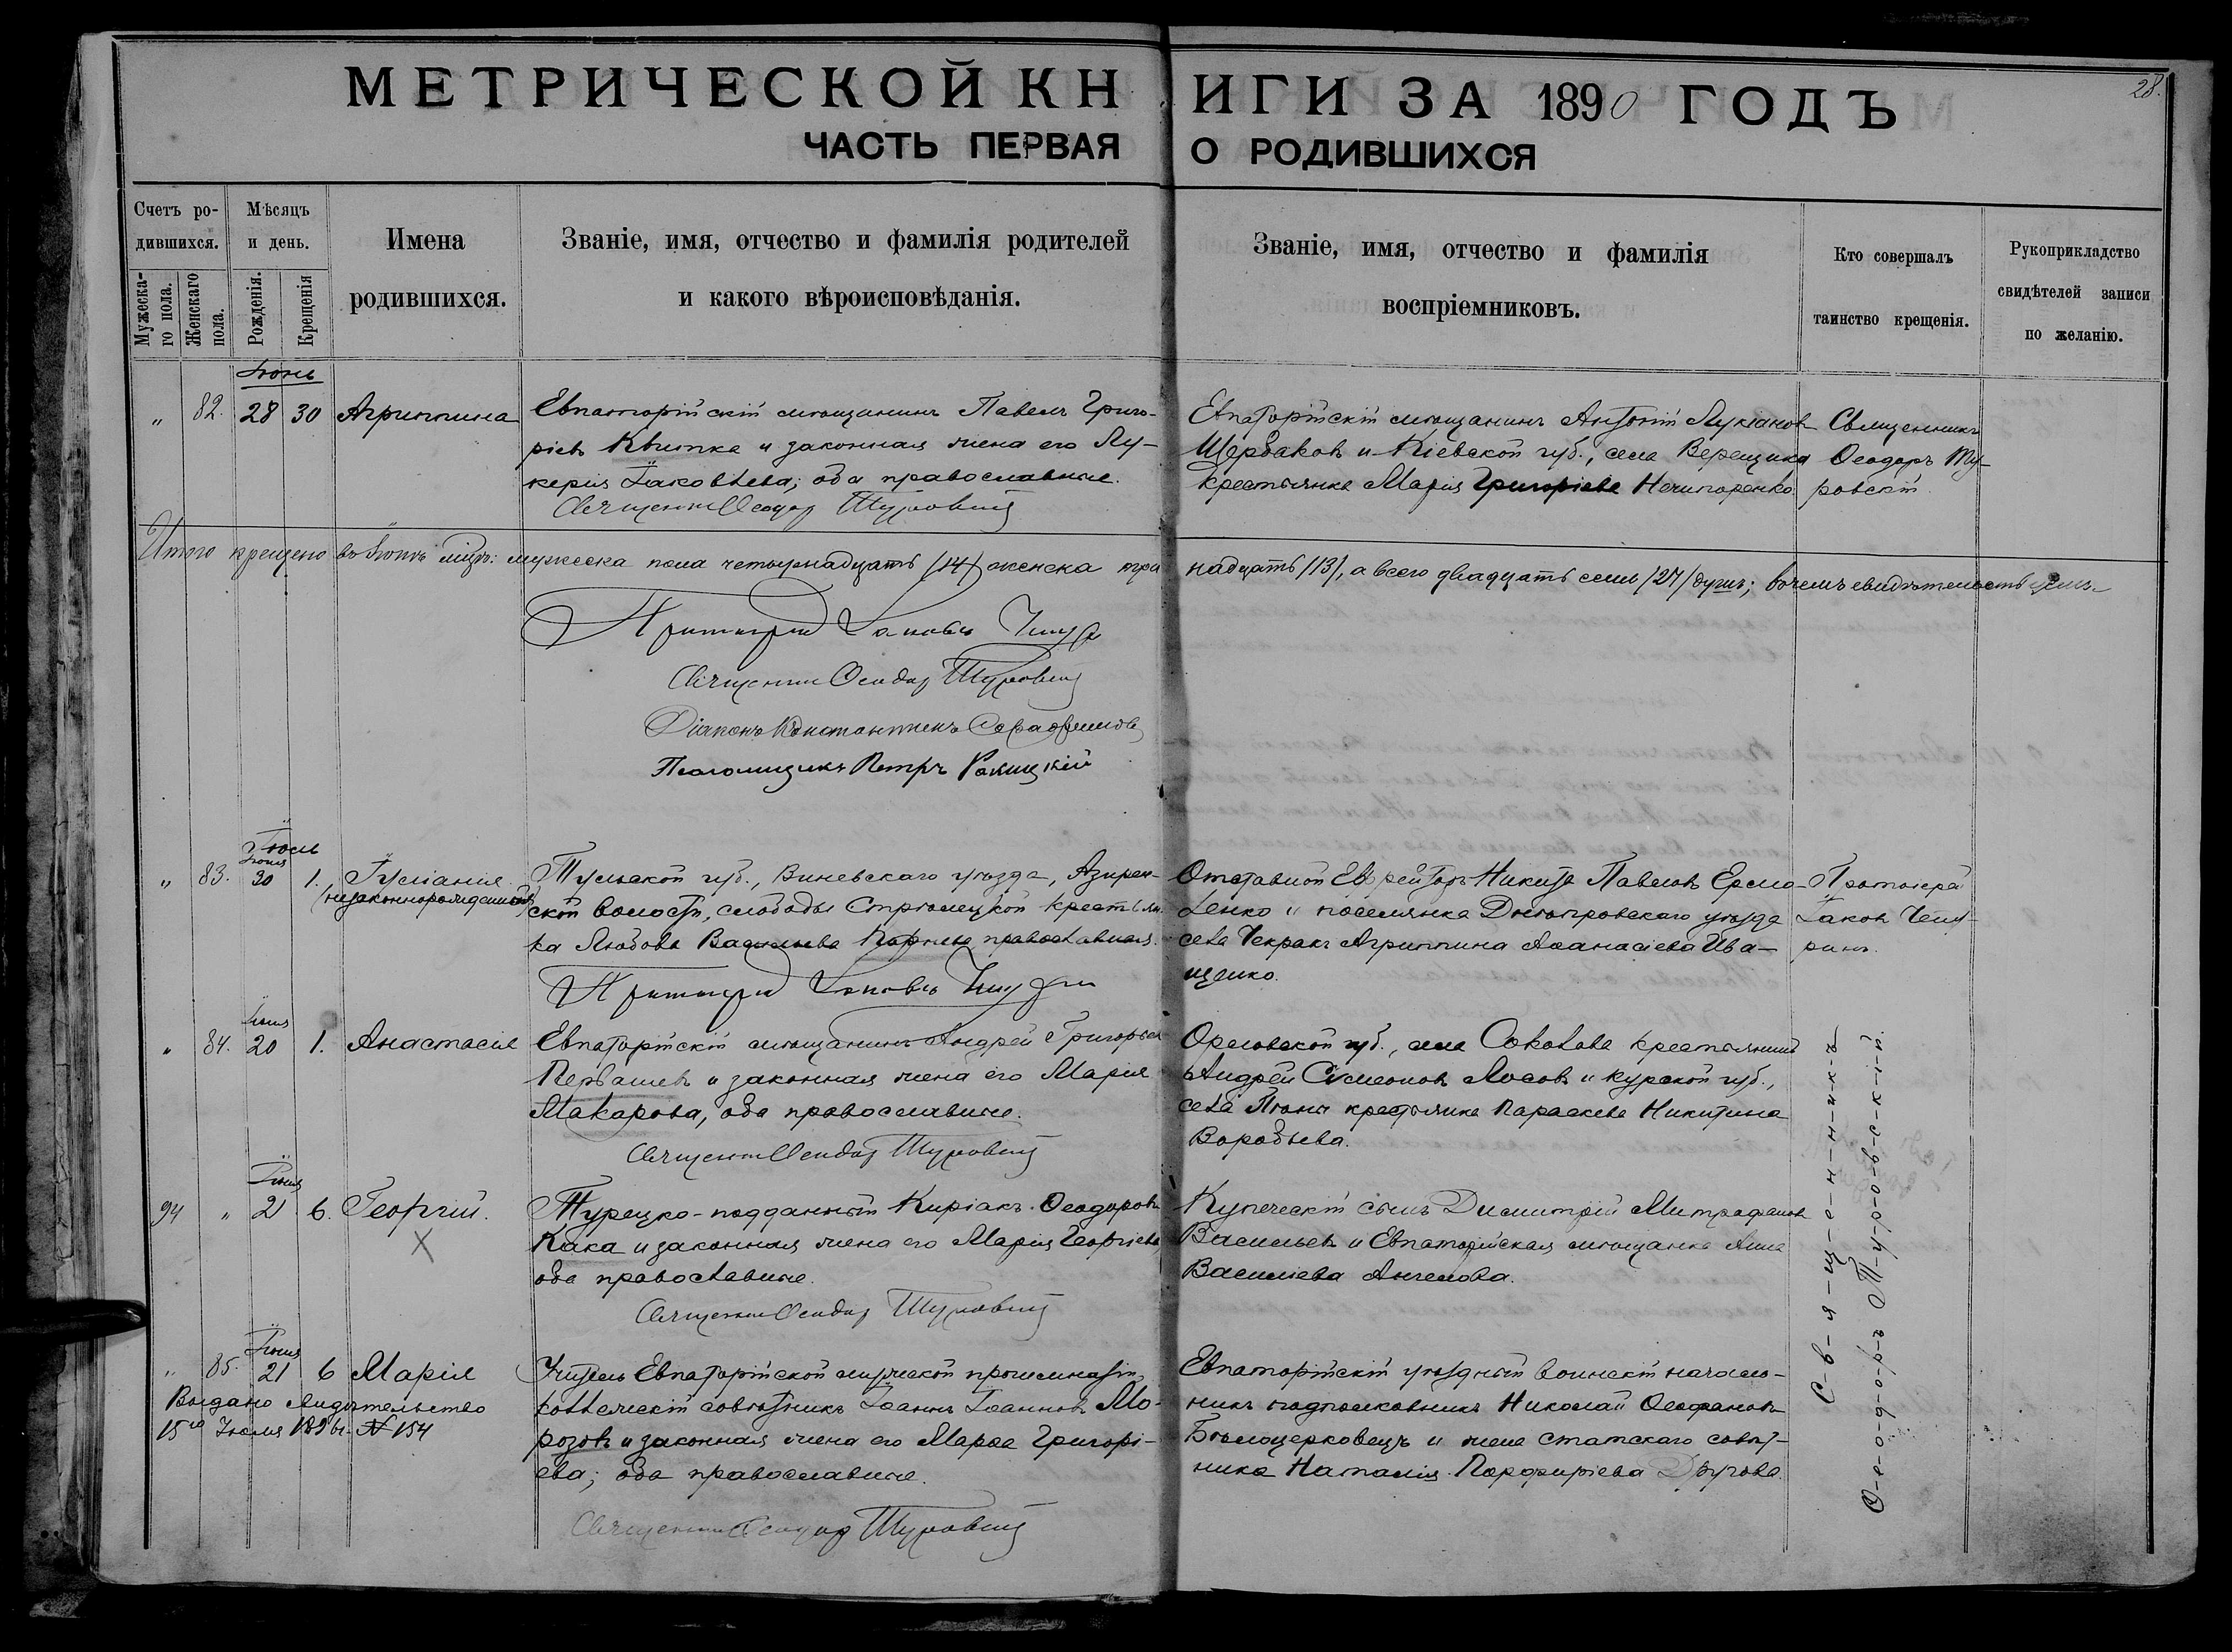 28.
МЕТРИЧЕСКОЙ КНИГИ ЗА 1890 ГОДЪ
ЧАСТЬ ПЕРВАЯ О РОДИВШИХСЯ
Счетъ ро-
дившихся.
Мужеска-
го пола.
Женскаго
пола.
Мѣсяцъ
и день.
Рожденія.
Крещенія
Имена
родившихся.
Званіе, имя, отчество и фамилія родителей
и какого вѣроисповѣданія.
Званіе, имя, отчество и фамилія
воспріемниковъ.
Кто совершалъ
таинство крещенія.
Рукоприкладство
свидѣтелей записи
по желанію.
Іюнь
" 82. 28 30 Агриппина
Евпаторійскій мѣщанинъ Павелъ Григо-
ріевъ Квитка и законная жена его Лу-
керія Іаковлева; оба православные.
Священникъ Ѳеодоръ Туровскій
Евпаторійскій мѣщанинъ Антоній Лукіановъ
Щербаковъ и Кіевской губ., села Верещика
крестьянка Марія Григоріева Нечипоренко
Священникъ
Ѳеодоръ Ту-
ровскій
Итого крещено въ Іюнѣ мцѣ: мужеска пола четырнадцать /14/ женска три надцать /13/, а всего двадцать семь /27/ душъ; въ чемъ свидѣтельствуемъ
Протоіерей Іаковъ
Священникъ Ѳеодоръ Туровскій
Діаконъ Константинъ Серафимовъ
Псаломщикъ Петръ Ракицкій
Іюль
" 83. Іюня 30 1. Іуліанія
(незаконнорожденная)
Тульской губ., Виневскаго уѣзда,
ской волости, слободы Стрѣлецкой крестьян-
ка Любовь Васильева православная.
Протоіерей Іаковъ
Отставной Ефрейторъ Никита Павловъ Ермо-
ленко и поселянка Днѣпровскаго уѣзда
села Чекракъ Агриппина Аѳанасіева Ива-
щенко.
Протоіерей
Іаковъ
ринъ.
" 84. Іюня 20 1. Анастасія
Евпаторійскій мѣщанинъ Андрей Григорьевъ
Первашевъ и законная жена его Марія
Макарова, оба православные.
Священникъ Ѳеодоръ Туровскій
Орловской губ., села Соколова крестьянинъ
Андрей Сѵмеоновъ Лосовъ и Курской губ.,
села крестьянка Параскева Никитина
Воробьева.
94 " Іюня 21 6. Георгій.
Турецко-подданный Киріакъ Ѳеодоровъ
Кака и законная жена его Марія Георгіева
оба православные.
Священникъ Ѳеодоръ Туровскій
Купеческій сынъ Димитрій Митрофановъ
Васильевъ и Евпаторійская мѣщанка Анна
Василіева Ангелова.
" 85. Іюня 21 6 Марія
Выдано свидѣтельство
15го Іюля 189 г. № 154
Учитель Евпаторійской мужской прогимназіи,
коллежскій совѣтникъ Іоаннъ Іоанновъ Мо-
розовъ и законная жена его Марѳа Григорі-
ева; оба православные.
Священникъ Ѳеодоръ Туровскій
Евпаторійскій уѣздный воинскій началь-
никъ подполковникъ Николай Ѳеофановъ
Бѣлоцерковецъ и жена статскаго совѣт-
ника Наталія Порфиріева Другова.
С-в-я-щ-е-н-н-и-к-ъ
Ѳ-е-о-д-о-р-ъ Т-у-р-о-в-с-к-і-й.